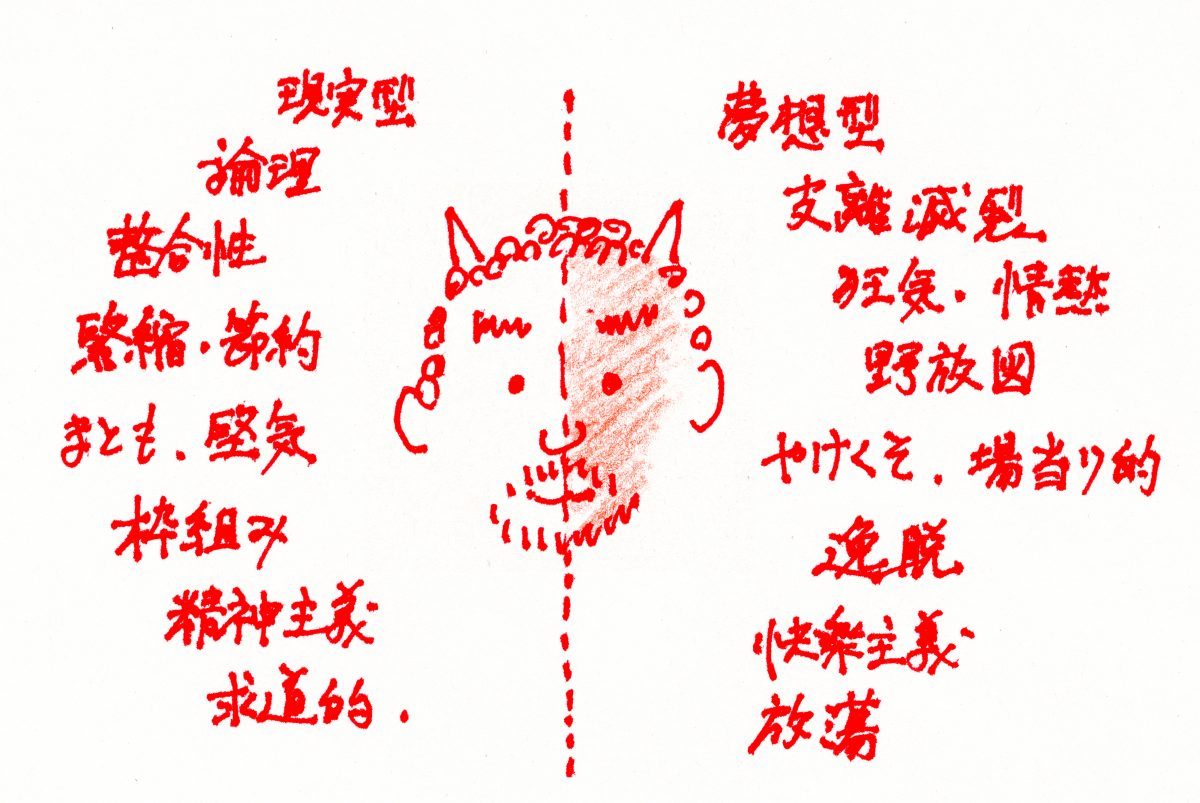 現実型
論理
整合性
緊縮・節約
まとも、堅気
枠組み
精神主義
求道的.
夢想型
支離滅裂
狂気・情慾
野放図
やけくそ、場当り的
逸脱
快楽主義
放蕩